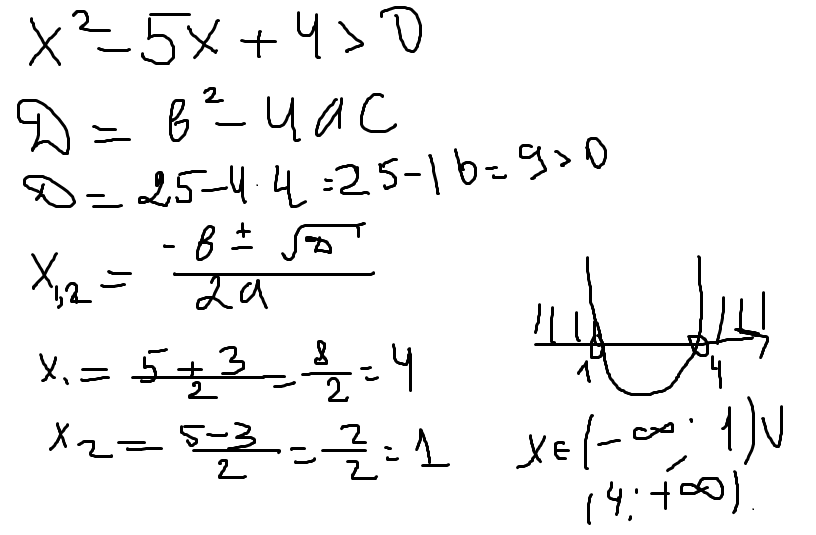 x² - 5x + 4 > 0
D = b² - 4ac
D = 25 - 4 · 4 = 25 - 16 = 9 > 0
x₁,₂ = (-b ± √D) / 2a
x₁ = (5 + 3) / 2 = 8 / 2 = 4
x₂ = (5 - 3) / 2 = 2 / 2 = 1
1 4
x ∈ (-∞; 1) ∪
(4; +∞).